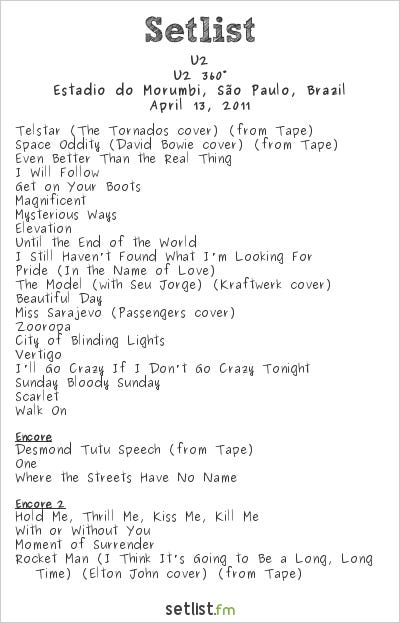 Setlist
U2
U2 360°
Estadio do Morumbi, São Paulo, Brazil
April 13, 2011
Telstar (The Tornados cover) (from Tape)
Space Oddity (David Bowie cover) (from Tape)
Even Better Than the Real Thing
I Will Follow
Get on Your Boots
Magnificent
Mysterious Ways
Elevation
Until the End of the World
I Still Haven't Found What I'm Looking For
Pride (In the Name of Love)
The Model (with Seu Jorge) (Kraftwerk cover)
Beautiful Day
Miss Sarajevo (Passengers cover)
Zooropa
City of Blinding Lights
Vertigo
I'll Go Crazy If I Don't Go Crazy Tonight
Sunday Bloody Sunday
Scarlet
Walk On
Encore
Desmond Tutu Speech (from Tape)
One
Where the Streets Have No Name
Encore 2
Hold Me, Thrill Me, Kiss Me, Kill Me
With or Without You
Moment of Surrender
Rocket Man (I Think It's Going to Be a Long, Long
Time) (Elton John cover) (from Tape)
setlist.fm